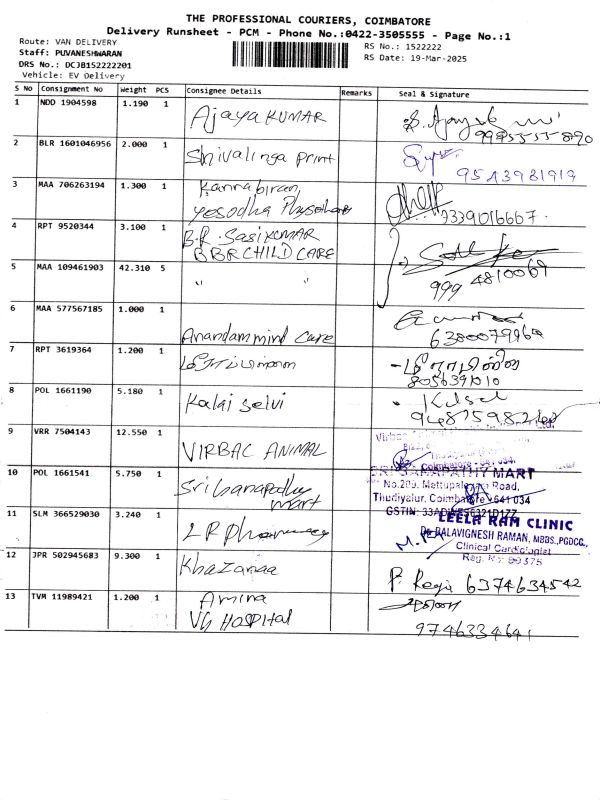 THE PROFESSIONAL COURIERS, COIMBATORE
Delivery Runsheet - PCM - Phone No.:0422-3505555 - Page No.:1
Route: VAN DELIVERY
RS No.: 1522222
Staff: PUVANESHWARAN
RS Date: 19-Mar-2025
DRS No.: DCJB152222201
Vehicle: EV Delivery
S No Consignment No Weight PCS Consignee Details Remarks Seal & Signature
1 NDD 1904598 1.190 1 Ajaya KUMAR
2 BLR 1601046956 2.000 1 Shivalinga print 9543981919
3 MAA 706263194 1.300 1 Kannabiran
Yesodha 9339016667.
4 RPT 9520344 3.100 1 B.R. SasiKUMAR
BBR CHILD CARE
5 MAA 109461903 42.310 5 " " 999 4810069
6 MAA 577567185 1.000 1
Anandam mind care
7 RPT 3619364 1.200 1
8 POL 1661190 5.180 1 Kalai Selvi
9 VRR 7504143 12.550 1 VIRBAC ANIMAL
Coimbatore - 641 034.
10 POL 1661541 5.750 1 Sri Ganapathy mart
SRI GANAPATHY MART
No.280, Mettupalayam Road,
Thudiyalur, Coimbatore - 641 034
11 SLM 366529030 3.240 1 LR Pharmacy
LEELA RAM CLINIC
Dr. BALAVIGNESH RAMAN, MBBS.,PGDCC.,
Clinical Cardiologist
12 JPR 502945683 9.300 1 Khazanaa
P. Regi 6374634542
13 TVM 11989421 1.200 1 Amina
VG HOSPITAL
9746334641